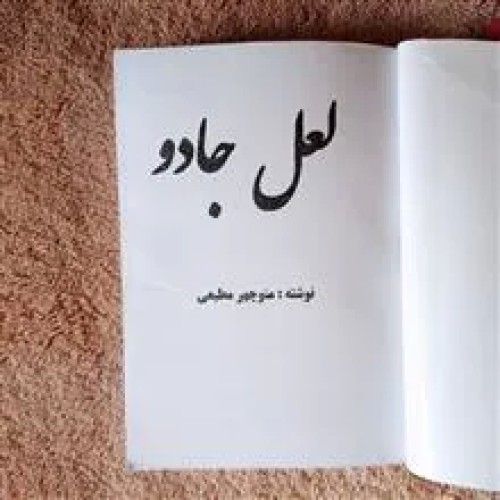 لعل جادو
نوشته : منوچهر مطیعی